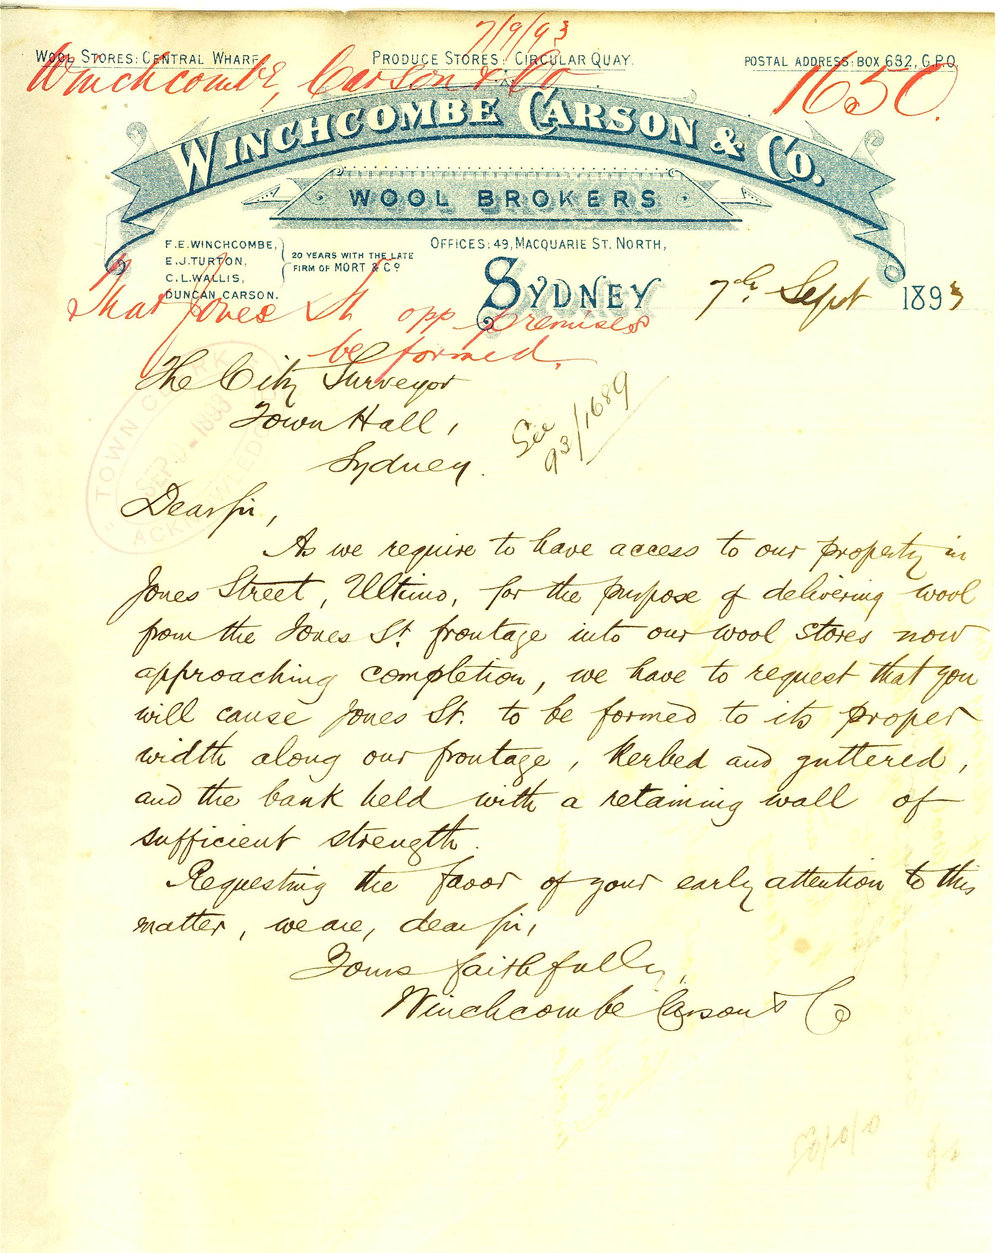 7/9/93
WOOL STORES: CENTRAL WHARF.
PRODUCE STORES: CIRCULAR QUAY.
POSTAL ADDRESS: BOX 632, G.P.O
Winchcombe, Carson & Co
1650.
WINCHCOMBE CARSON & CO.
WOOL BROKERS
F.E. WINCHCOMBE,
E.J. TURTON,
C.L. WALLIS,
DUNCAN CARSON.
20 YEARS WITH THE LATE
FIRM OF MORT & Co
OFFICES: 49, MACQUARIE ST. NORTH,
SYDNEY 7th Sept 1893
That Jones St opp premises
be formed.
The City Surveyor
Town Hall,
Sydney.
See
93/1689
TOWN CLERK
SEP 1893
ACKNOWLEDGED
Dear Sir,
As we require to have access to our property in
Jones Street, Ultimo, for the purpose of delivering wool
from the Jones St. frontage into our wool stores now
approaching completion, we have to request that you
will cause Jones St. to be formed to its proper
width along our frontage, kerbed and guttered,
and the bank held with a retaining wall of
sufficient strength.
Requesting the favor of your early attention to this
matter, we are, dear Sir,
Yours faithfully,
Winchcombe Carson & Co